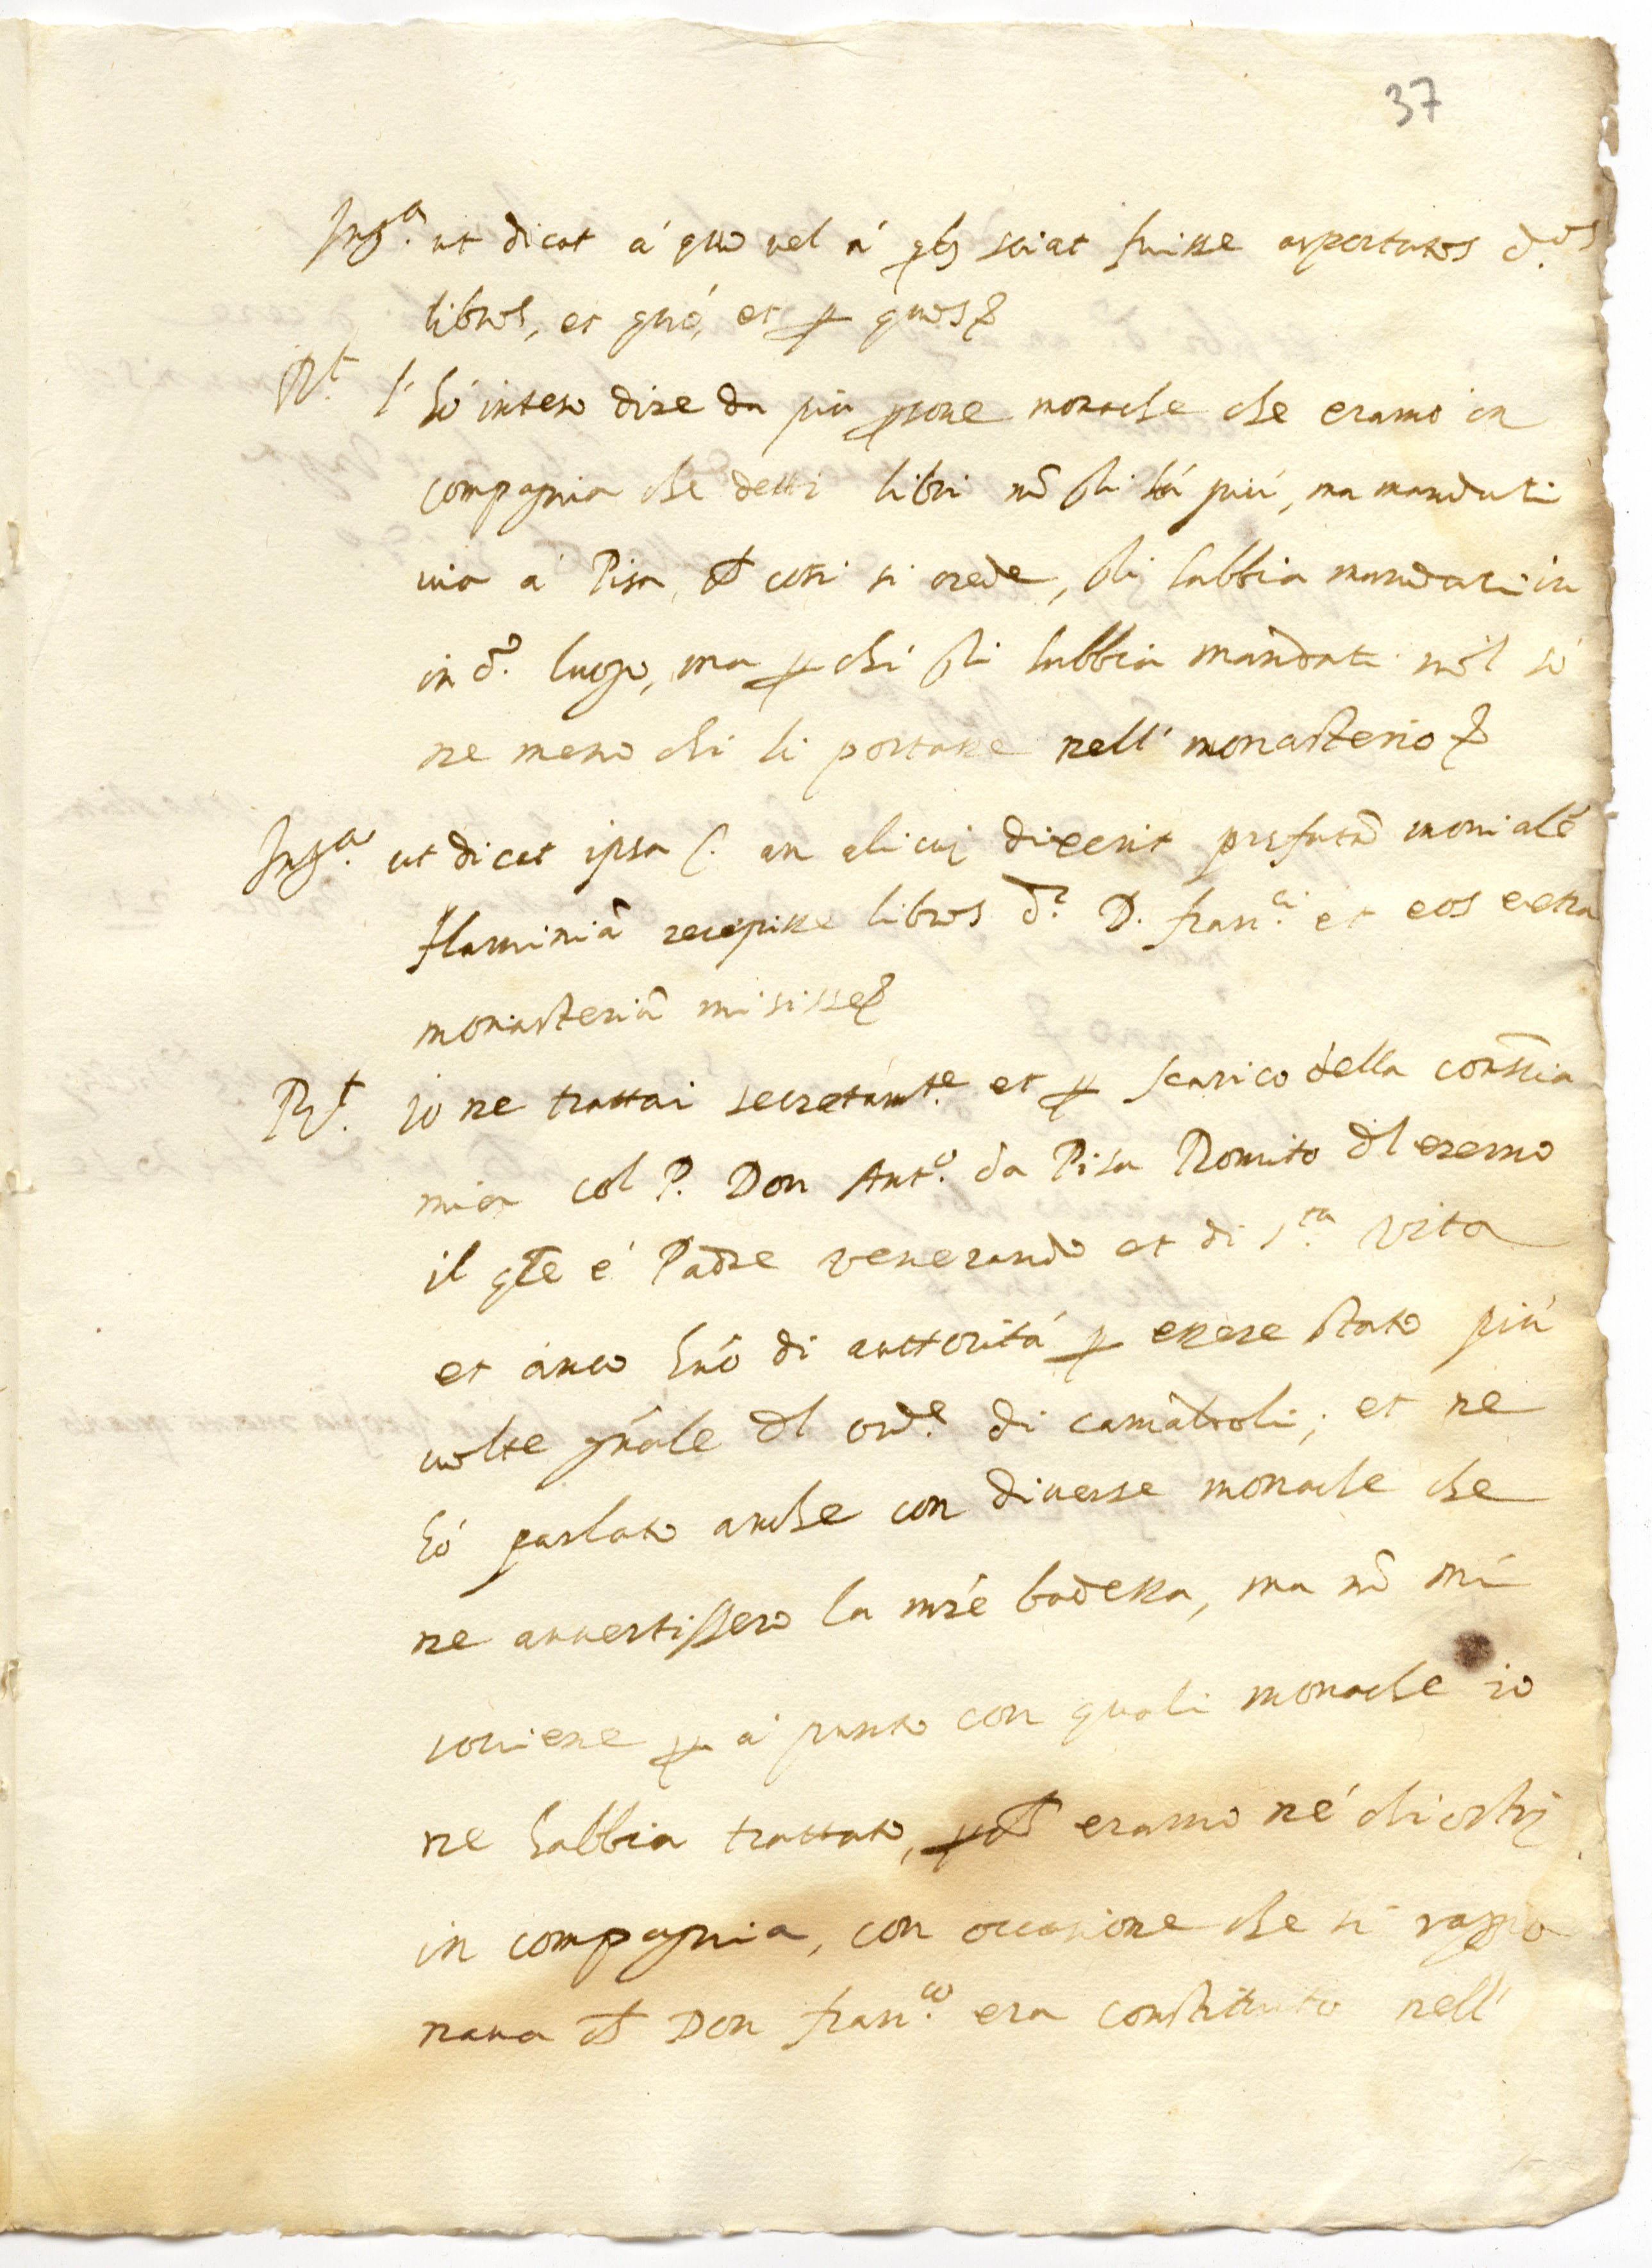 37
Int.ª ut dicat á quo vel á qbs sciat fuisse asportatos d.os
libros, et quó, et p quos
Rt l'hó inteso dire da più psone monache che eramo in
compagnia che detti libri nō gli há piú, ma mandati
via á Pisa, et cosí si crede, gli habbia mandati in
in d.º luogo, ma p chi gli habbia mandati nōl só
ne meno chi li portasse nell' monasterio
Int.ª ut dicat ipsa C. an alicui dixerit prefatā monialē
flaminiā recepisse libros d.i D. fran.ci et eos extra
monasteriū misisse
Rt. io ne trattai secretamt.e et p scarico della consīa
mia col P. Don Ant.º da Pisa Romito dl eremo
il qle é Padre venerando et di s.ta vita
et anco huō di auttoritá p essere stato piú
volte gnāle dl ord.e di camaldoli; et ne
hó parlato anche con diverse monache che
ne avvertissero la mrē badessa, ma nō mi
soviene p á punto con quali monache io
ne habbia trattato, eramo né chiostri
in compagnia, con occasione che si raggio
nava Don fran.co era constituto nell'